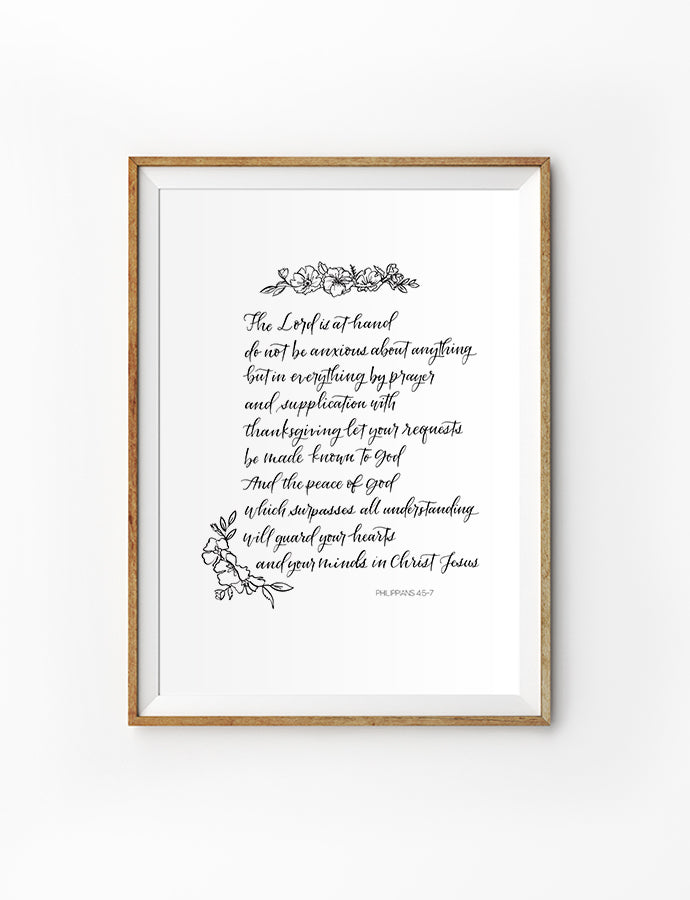 The Lord is at hand
do not be anxious about anything
but in everything by prayer
and supplication with
thanksgiving let your requests
be made known to God
And the peace of God
which surpasses all understanding
will guard your hearts
and your minds in Christ Jesus
PHILIPPIANS 4:5-7